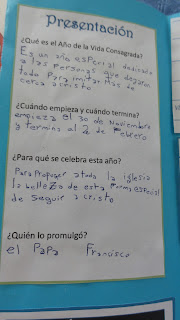 Presentación
¿Qué es el Año de la Vida Consagrada?
Es un año especial dedicado
a las personas que dejaron
todo Para imitar mas de
cerca a cristo
¿Cuándo empieza y cuándo termina?
empieza el 30 de Noviembre
y termina al 2 de Febrero
¿Para qué se celebra esta año?
Para Proponer a toda la iglesia
la belleza de esta forma especial
de seguir a cristo
¿Quién lo promulgó?
el Papa Francisco